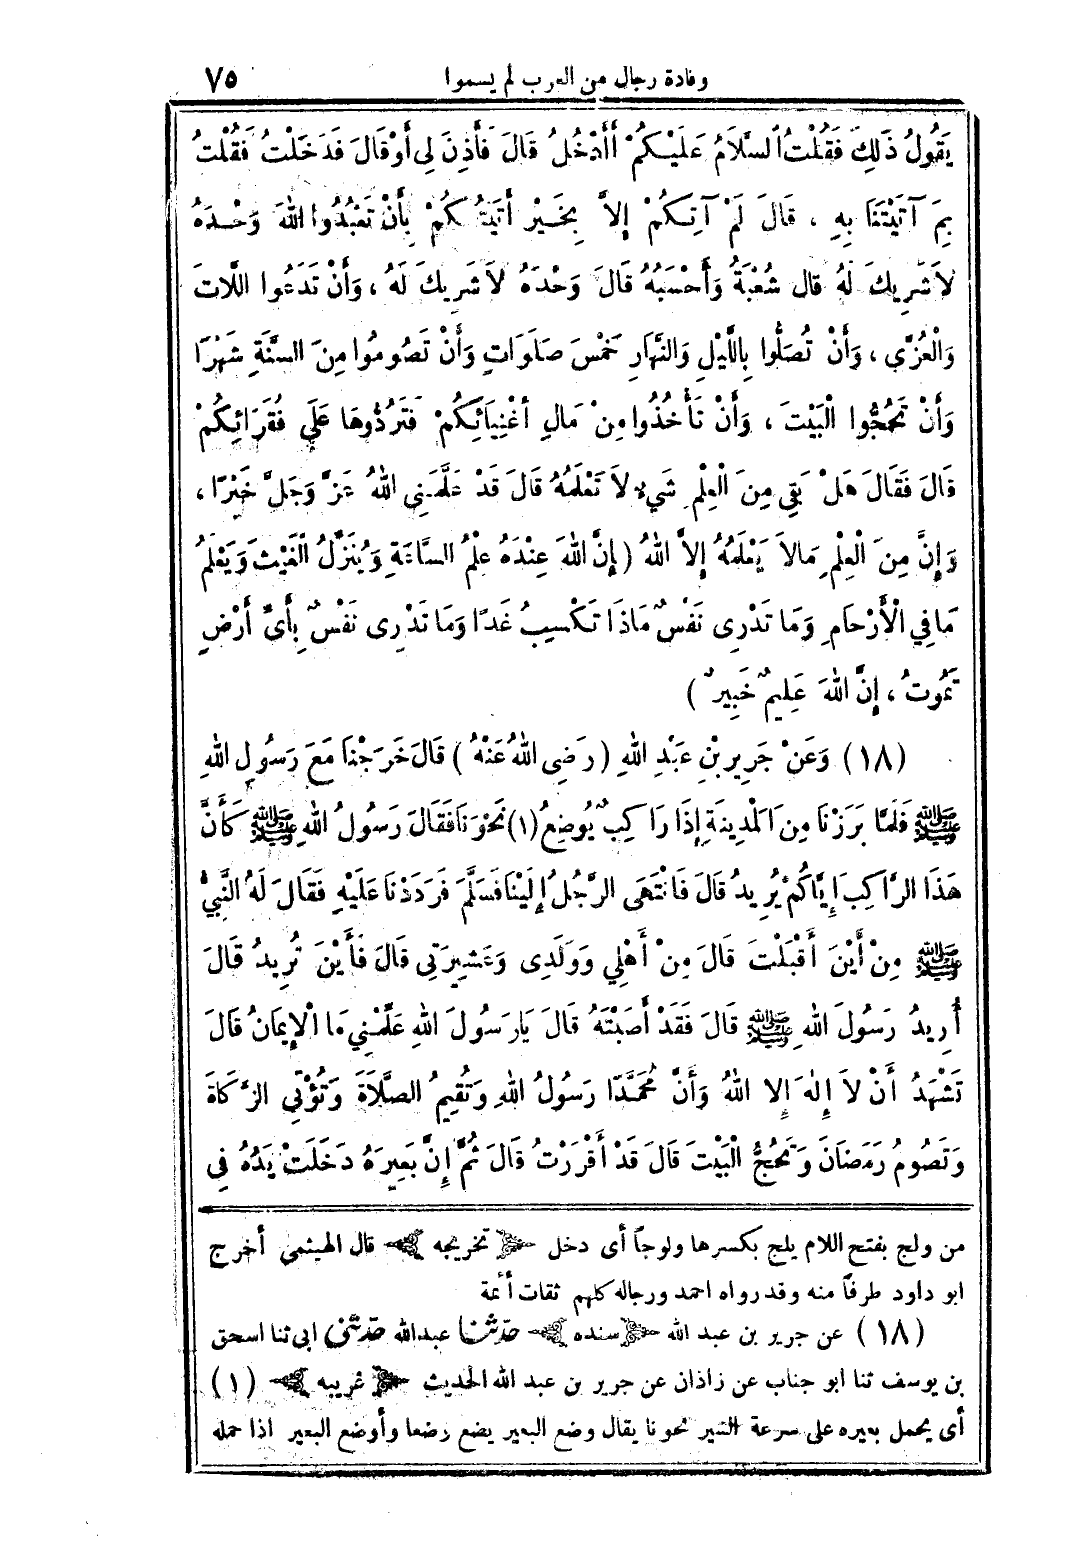 وفادة رجال من العرب لم يسموا ٧٥
يَقُولُ ذَلِكَ فَقُلْتُ السَّلَامُ عَلَيْكُمْ أَأَدْخُلُ قَالَ فَأَذِنَ لِي أَوْ قَالَ فَدَخَلْتُ فَقُلْتُ
بِمَ آتَيْتَنَا بِهِ ، قَالَ لَمْ آتِكُمْ إِلاَّ بِخَيْرٍ أَتَيْتُكُمْ بِأَنْ تَعْبُدُوا اللهَ وَحْدَهُ
لاَ شَرِيكَ لَهُ قال شُعْبَةُ وَأَحْسَبُهُ قَالَ وَحْدَهُ لاَ شَرِيكَ لَهُ ، وَأَنْ تَدَعُوا اللَّاتَ
وَالْعُزَّى ، وَأَنْ تُصَلُّوا بِاللَّيْلِ وَالنَّهَارِ خَمْسَ صَلَوَاتٍ وَأَنْ تَصُومُوا مِنَ السَّنَةِ شَهْرًا
وَأَنْ تَحُجُّوا الْبَيْتَ ، وَأَنْ تَأْخُذُوا مِنْ مَالِ أَغْنِيَائِكُمْ فَتَرُدُّوهَا عَلَى فُقَرَائِكُمْ
قَالَ فَقَالَ هَلْ بَقِيَ مِنَ الْعِلْمِ شَيْءٌ لاَ تَعْلَمُهُ قَالَ قَدْ عَلَّمَنِي اللهُ عَزَّ وَجَلَّ خَيْرًا ،
وَإِنَّ مِنَ الْعِلْمِ مَالاَ يَعْلَمُهُ إِلاَّ اللهُ (إِنَّ اللهَ عِنْدَهُ عِلْمُ السَّاعَةِ وَيُنَزِّلُ الْغَيْثَ وَيَعْلَمُ
مَا فِي الْأَرْحَامِ وَمَا تَدْرِى نَفْسٌ مَاذَا تَكْسِبُ غَدًا وَمَا تَدْرِى نَفْسٌ بِأَىِّ أَرْضٍ
تَمُوتُ ، إِنَّ اللهَ عَلِيمٌ خَبِيرٌ )
(١٨) وَعَنْ جَرِيرِ بْنِ عَبْدِ اللهِ (رَضِيَ اللهُ عَنْهُ) قَالَ خَرَجْنَا مَعَ رَسُولِ اللهِ
ﷺ فَلَمَّا بَرَزْنَا مِنَ الْمَدِينَةِ إِذَا رَاكِبٌ يُوضِعُ (١) نَحْوَنَا فَقَالَ رَسُولُ اللهِ ﷺ كَأَنَّ
هَذَا الرَّاكِبَ إِيَّاكُمْ يُرِيدُ قَالَ فَانْتَهَى الرَّجُلُ إِلَيْنَا فَسَلَّمَ فَرَدَدْنَا عَلَيْهِ فَقَالَ لَهُ النَّبِيُّ
ﷺ مِنْ أَيْنَ أَقْبَلْتَ قَالَ مِنْ أَهْلِي وَوَلَدِى وَعَشِيرَتِي قَالَ فَأَيْنَ تُرِيدُ قَالَ
أُرِيدُ رَسُولَ اللهِ ﷺ قَالَ فَقَدْ أَصَبْتَهُ قَالَ يَا رَسُولَ اللهِ عَلِّمْنِي مَا الْإِيمَانُ قَالَ
تَشْهَدُ أَنْ لاَ إِلٰهَ إِلا اللهُ وَأَنَّ مُحَمَّدًا رَسُولُ اللهِ وَتُقِيمُ الصَّلاَةَ وَتُؤْتِي الزَّكَاةَ
وَتَصُومُ رَمَضَانَ وَتَحُجُّ الْبَيْتَ قَالَ قَدْ أَقْرَرْتُ قَالَ ثُمَّ إِنَّ بَعِيرَهُ دَخَلَتْ يَدُهُ فِي
من ولج بفتح اللام يلج بكسرها ولوجاً أى دخل ﴿تخريجه﴾ قال الهيثمى أخرج
ابو داود طرفاً منه وقد رواه احمد ورجاله كلهم ثقات أئمة
(١٨) عن جرير بن عبد الله ﴿سنده﴾ حدّثنا عبدالله حدّثنى ابى ثنا اسحق
بن يوسف ثنا ابو جناب عن زاذان عن جرير بن عبد الله الحديث ﴿غريبه﴾ (١)
أى يحمل بعيره على سرعة السير نحونا يقال وضع البعير يضع وضعا وأوضع البعير اذا حمله